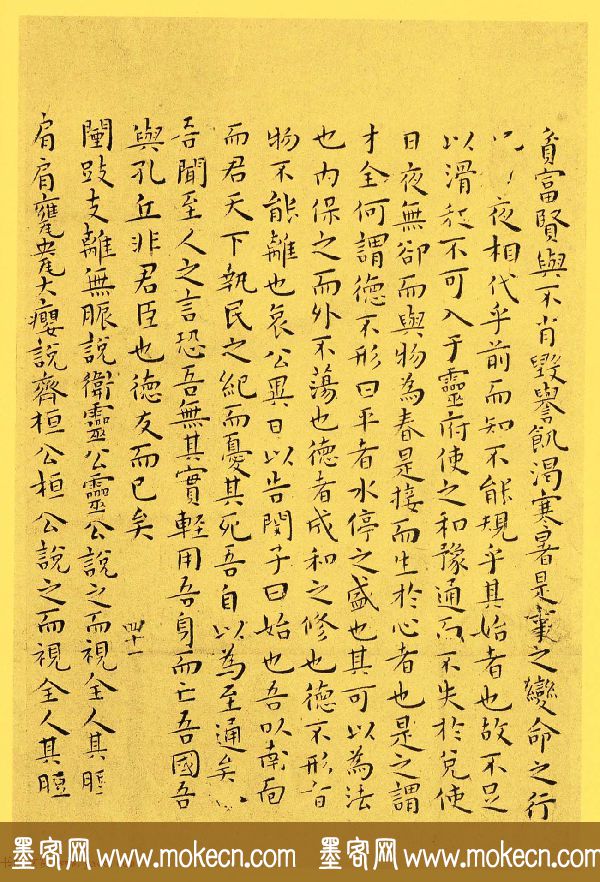 貧富賢與不肖毀譽飢渴寒暑是事之變命之行
夜相代乎前而知不能規乎其始者也故不足
以滑和不可入于靈府使之和豫通而不失於兌使
日夜無卻而與物為春是接而生於心者也是之謂
才全何謂德不形曰平者水停之盛也其可以為法
也内保之而外不蕩也德者成和之修也德不形者
物不能離也哀公異日以告閔子曰始也吾以南面
而君天下執民之紀而憂其死吾自以為至通矣
吾聞至人之言恐吾無其實輕用吾身而亡吾國吾
與孔丘非君臣也德友而已矣
四十一
闉跂支離無脤說衛靈公靈公說之而視全人其脰
肩肩甕㼜大癭說齊桓公桓公說之而視全人其脰
墨客网 www.mokecn.com 墨客网 www.mokecn.com